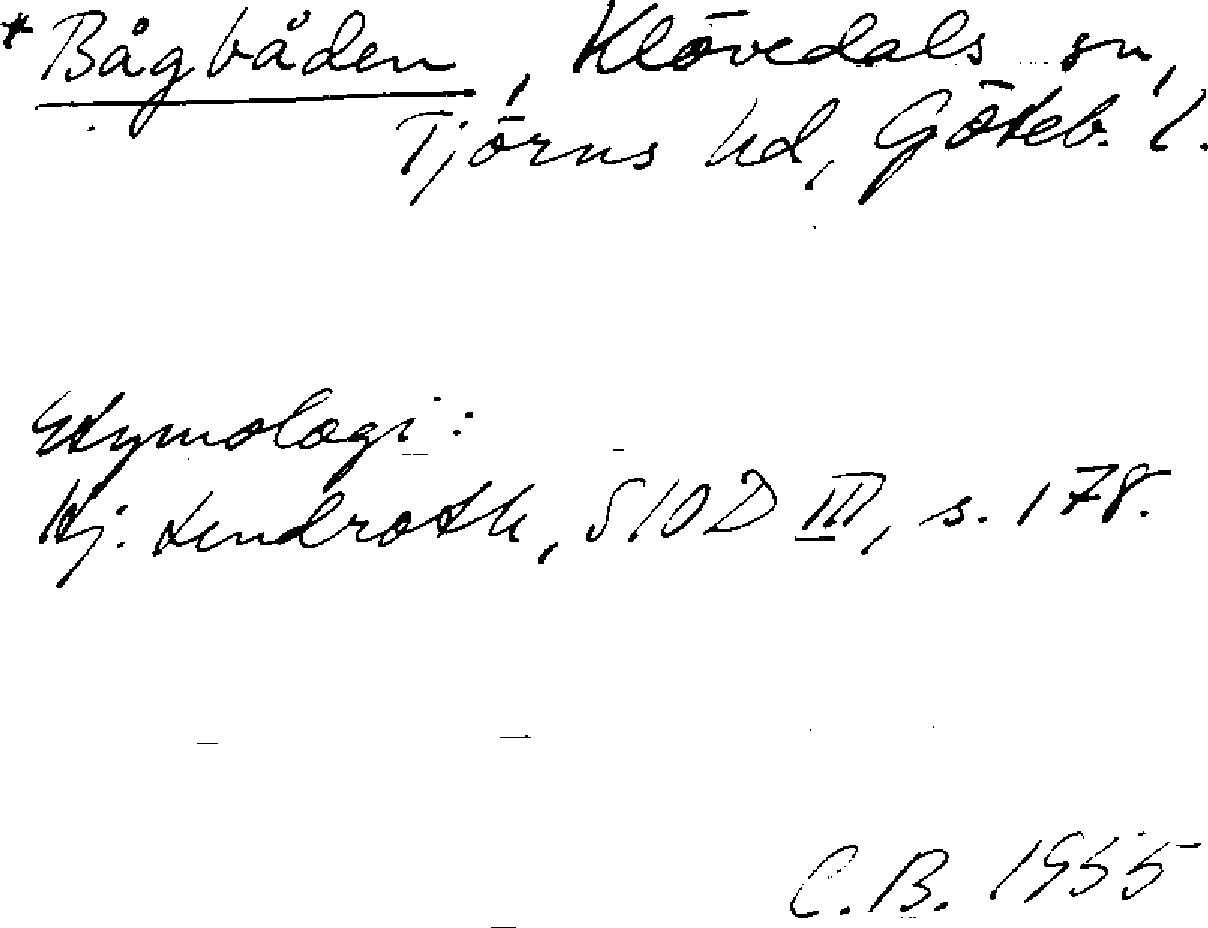 *Bågbåden, Klövedals sn,
Tjörns hd, Göteb. l.
Etymologi:
Hj. Lindroth, SIOD III, s. 178.
C.B. 1955